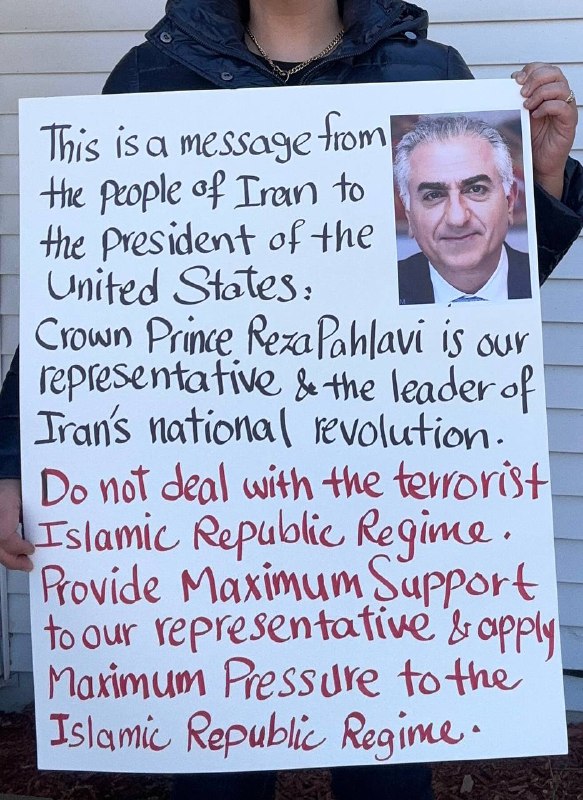 This is a message from
the people of Iran to
the president of the
United States:
Crown Prince Reza Pahlavi is our
representative & the leader of
Iran's national revolution.
Do not deal with the terrorist
Islamic Republic Regime.
Provide Maximum Support
to our representative & apply
Maximum Pressure to the
Islamic Republic Regime.